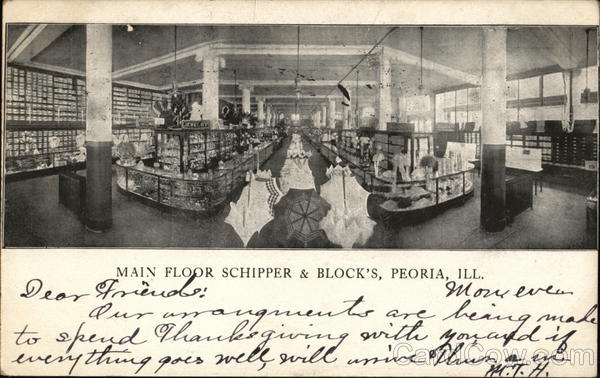 MAIN FLOOR SCHIPPER & BLOCK'S, PEORIA, ILL.
Dear Friends: Mon, eve.
Our arrangments are being made
to spend Thanksgiving with you and if
everything goes well, will arrive Thurs
M.T.H.
CardCow.com